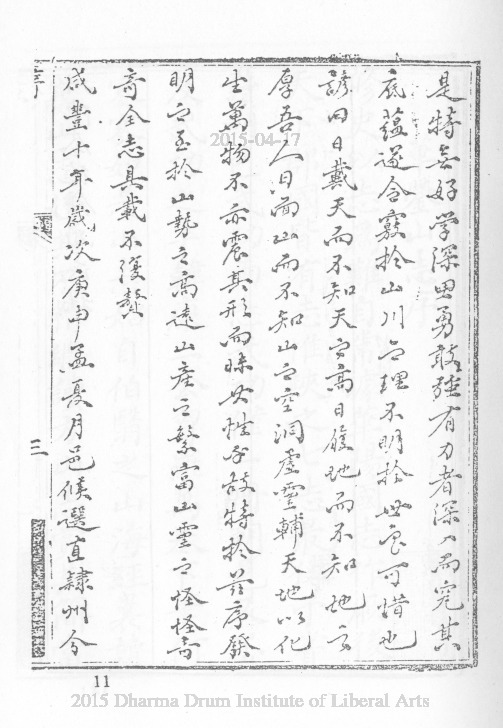 是特無好学深思勇敢強有力者深入而究其
底蘊遂令竅於山川之理不明於世良可惜也
諺曰日戴天而不知天之高日履地而不知地之
厚吾人日面山而不知山之空洞虛靈輔天地以化
生萬物不亦震其形而昧其性乎故特於茲序發
明之至於山勢之高遠山產之繁富山靈之怪怪奇
奇全志具載不復贅
咸豐十年歲次庚申孟夏月邑候選直隸州令
序
三
2015-04-17
11
2015 Dharma Drum Institute of Liberal Arts